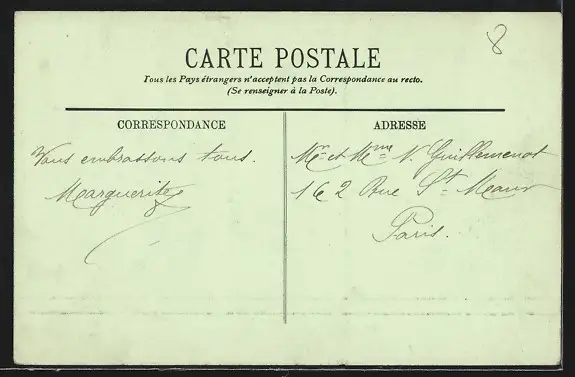 8
CARTE POSTALE
Tous les Pays étrangers n'acceptent pas la Correspondance au recto.
(Se renseigner à la Poste).
CORRESPONDANCE
ADRESSE
Vous embrassons tous.
Marguerite
Mr et Mme N. Guillemenot
162 Rue St Maur
Paris.